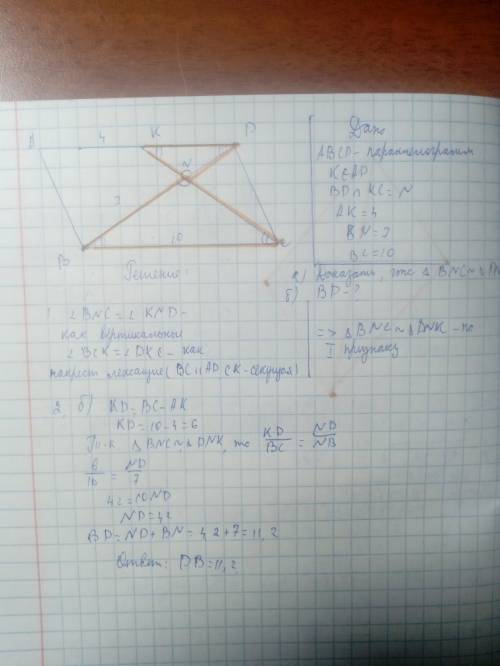 A 4 K D
N
7
B 10 C
Дано
ABCD - параллелограмм
K∈AD
BD∩KC = N
AK = 4
BN = 7
BC = 10
а) Доказать, что △BNC ~ △DNK
б) BD - ?
Решение:
1. ∠BNC = ∠KND -
как вертикальные
∠BCK = ∠DKC - как
накрест лежащие (BC || AD, CK - секущая)
=> △BNC ~ △DNK - по
I признаку
2. б) KD = BC - AK
KD = 10 - 4 = 6
Т.к. △BNC ~ △DNK, то KD/BC = ND/NB
6/10 = ND/7
42 = 10ND
ND = 4,2
BD = ND + BN = 4,2 + 7 = 11,2
Ответ: DB = 11,2